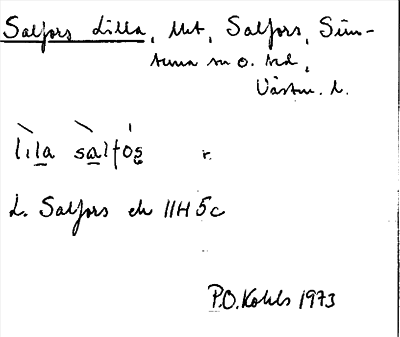 Salfors Lilla, Mt, Salfors, Sim-
tuna sn o. hd,
Västm. l.
lı̣la salfǫs r.
L. Salfors ek 11H 5c
P.O. Kohls 1973